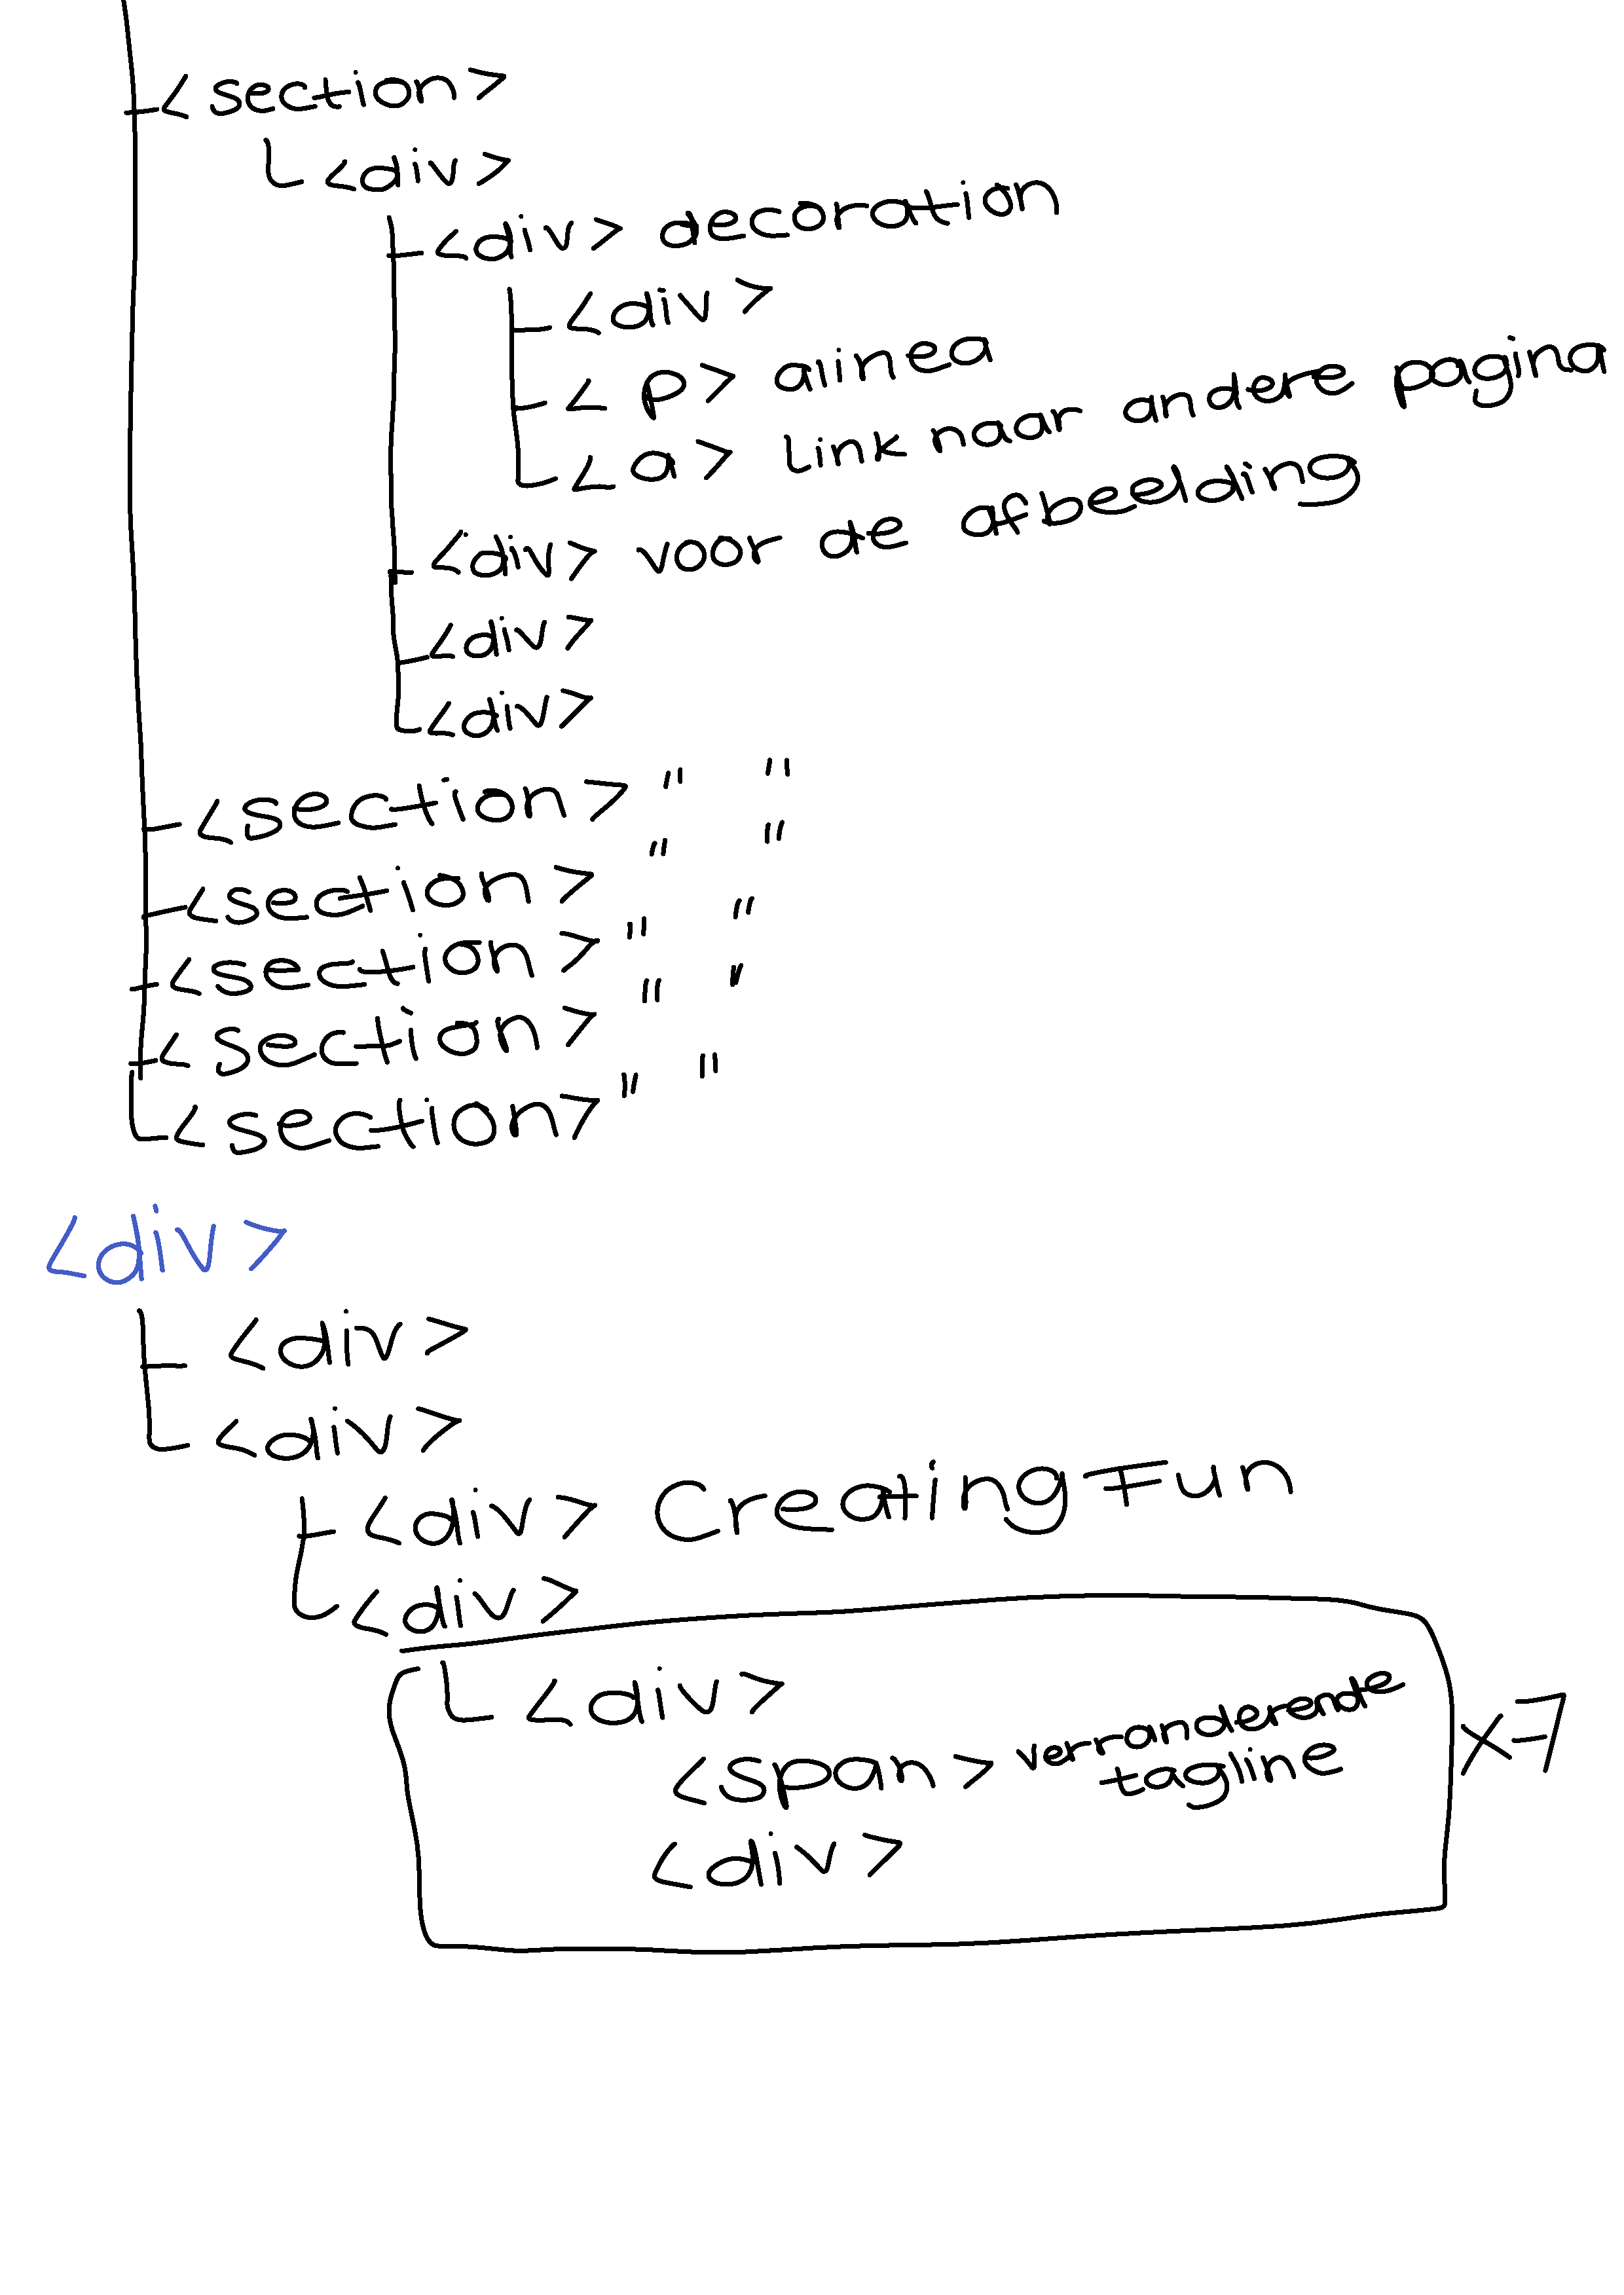 <section>
<div>
<div> decoration
<div>
<p> alinea
<a> link naar andere pagina
<div> voor de afbeelding
<div>
<div>
<section> " "
<section> " "
<section> " "
<section> " "
<section> " "
<div>
<div>
<div>
<div> Creating Fun
<div>
<div>
<span> verranderende
tagline
x7
<div>